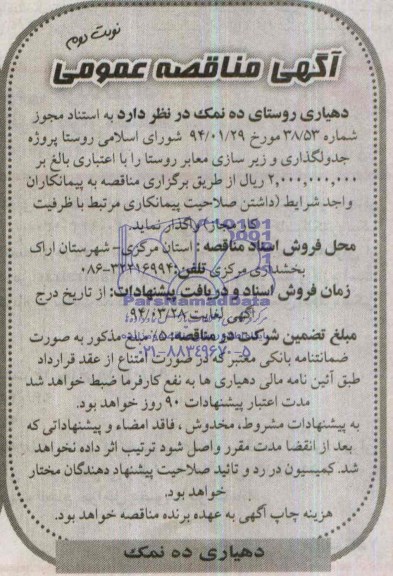 نوبت دوم
آگهی مناقصه عمومی
دهیاری روستای ده نمک در نظر دارد به استناد مجوز
شماره ۳۸/۵۳ مورخ ۹۴/۰۱/۲۹ شورای اسلامی روستا پروژه
جدولگذاری و زیر سازی معابر روستا را با اعتباری بالغ بر
۲,۰۰۰,۰۰۰,۰۰۰ ریال از طریق برگزاری مناقصه به پیمانکاران
واجد شرایط (داشتن صلاحیت پیمانکاری مرتبط با ظرفیت
کار مجاز) واگذار نماید.
محل فروش اسناد مناقصه : استان مرکزی – شهرستان اراک
بخشداری مرکزی تلفن: ۳۲۲۱۶۹۹۴-۰۸۶
زمان فروش اسناد و دریافت پیشنهادات: از تاریخ درج
آگهی لغایت ۹۴/۰۳/۲۸
مبلغ تضمین شرکت در مناقصه: ۵٪ مبلغ مذکور به صورت
ضمانتنامه بانکی معتبر که در صورت امتناع از عقد قرارداد
طبق آئین نامه مالی دهیاری ها به نفع کارفرما ضبط خواهد شد
مدت اعتبار پیشنهادات ۹۰ روز خواهد بود.
به پیشنهادات مشروط، مخدوش ، فاقد امضاء و پیشنهاداتی که
بعد از انقضا مدت مقرر واصل شود ترتیب اثر داده نخواهد
شد. کمیسیون در رد و تائید صلاحیت پیشنهاد دهندگان مختار
خواهد بود.
هزینه چاپ آگهی به عهده برنده مناقصه خواهد بود.
دهیاری ده نمک
ParsNamadData
۰۲۱-۸۸۳۴۹۶۷۰-۵